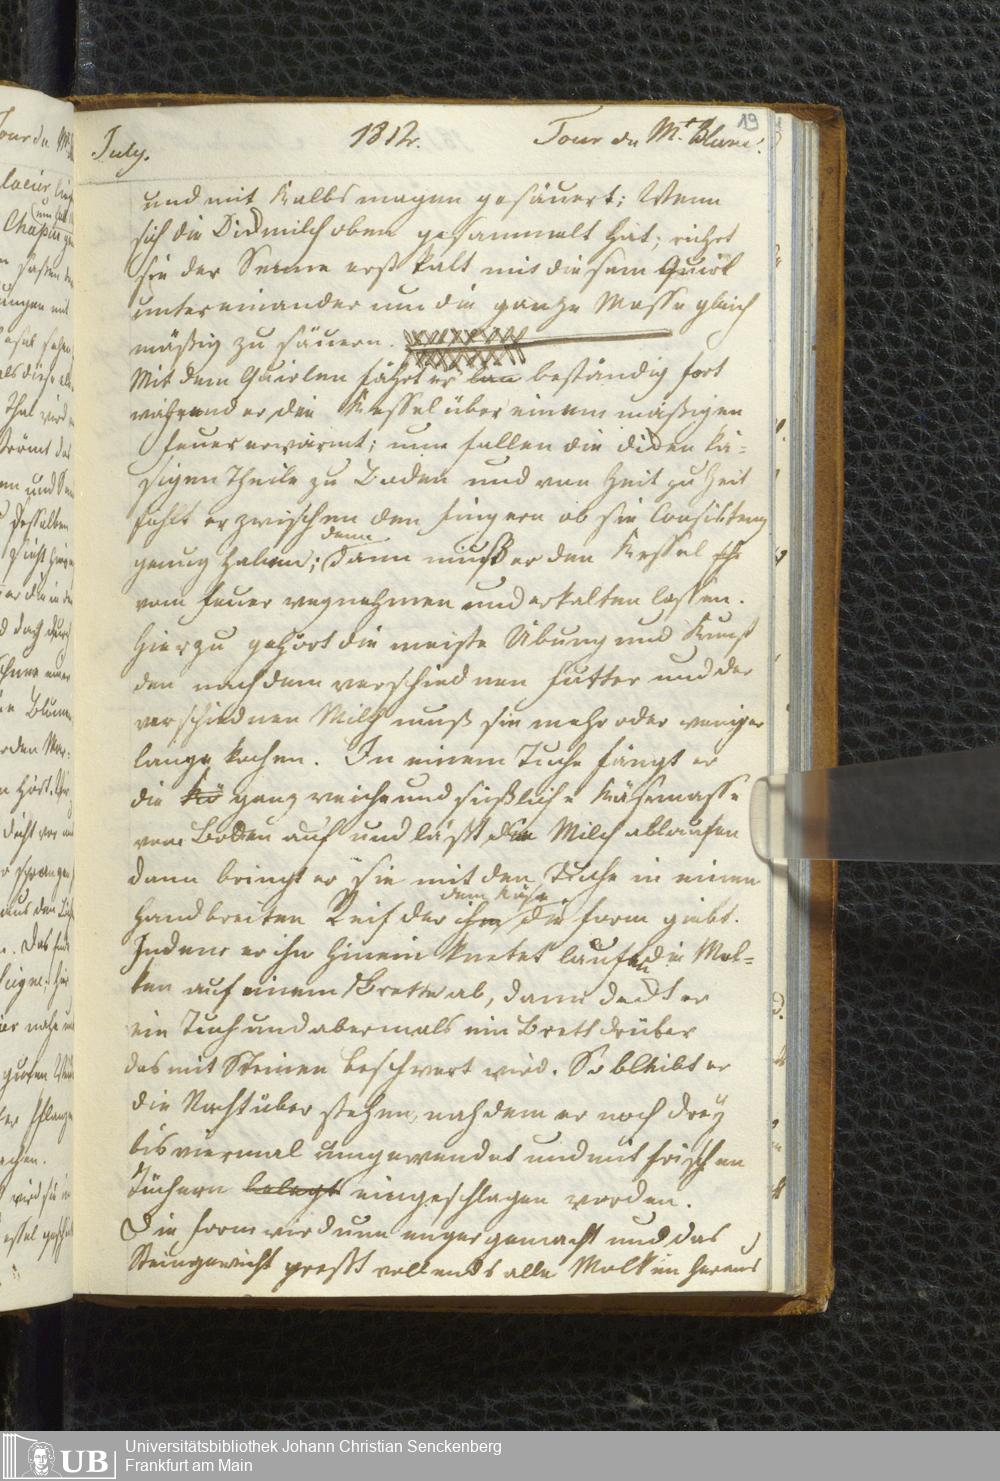 19
July. 1812. Tour du Mt Blanc.
und mit Kalbsmagen gesäuert: Wenn
sich die Dickmilch oben gesammelt hat; rührt
sie der Senne erst kalt mit diesem Quirl
untereinander um die ganze Masse gleich
mäßig zu säuern.
Mit dem Quirlen fährt er beständig fort
während er den Kessel über einem mäßigen
Feuer erwärmt; nun fallen die dicken kä-
sigen Theile zu Boden und von Zeit zu Zeit
fühlt er zwischen den Fingern ob sie Consistenz
genug haben; denn dann muß er den Kessel
vom Feuer wegnehmen und erkalten lassen.
Hierzu gehört die meiste Übung und Kunst
den nach dem verschiednen Futter und der
verschiednen Milch muß sie mehr oder weniger
lange kochen. In einem Tuche fängt er
die ganz weiche und süßliche Käsemasse
vom Boden auf und läßt die Milch ablaufen
dann bringt er sie mit den Tuche in einen
handbreiten Reif der dem Käse die Form giebt.
Indem er ihn hinein knetet laufen die Mol-
ken auf einem Brette ab, dann deckt er
ein Tuch und abermals ein Brett drüber
das mit Steinen beschwert wird. So bleibt er
die Nacht über stehen, nachdem er noch drey
bis viermal umgewendet und mit frischen
Tüchern belegt eingeschlagen worden.
Die Form wird nun enger gemacht und das
Steingewicht preßt vollends alle Molken heraus
UB
Universitätsbibliothek Johann Christian Senckenberg
Frankfurt am Main